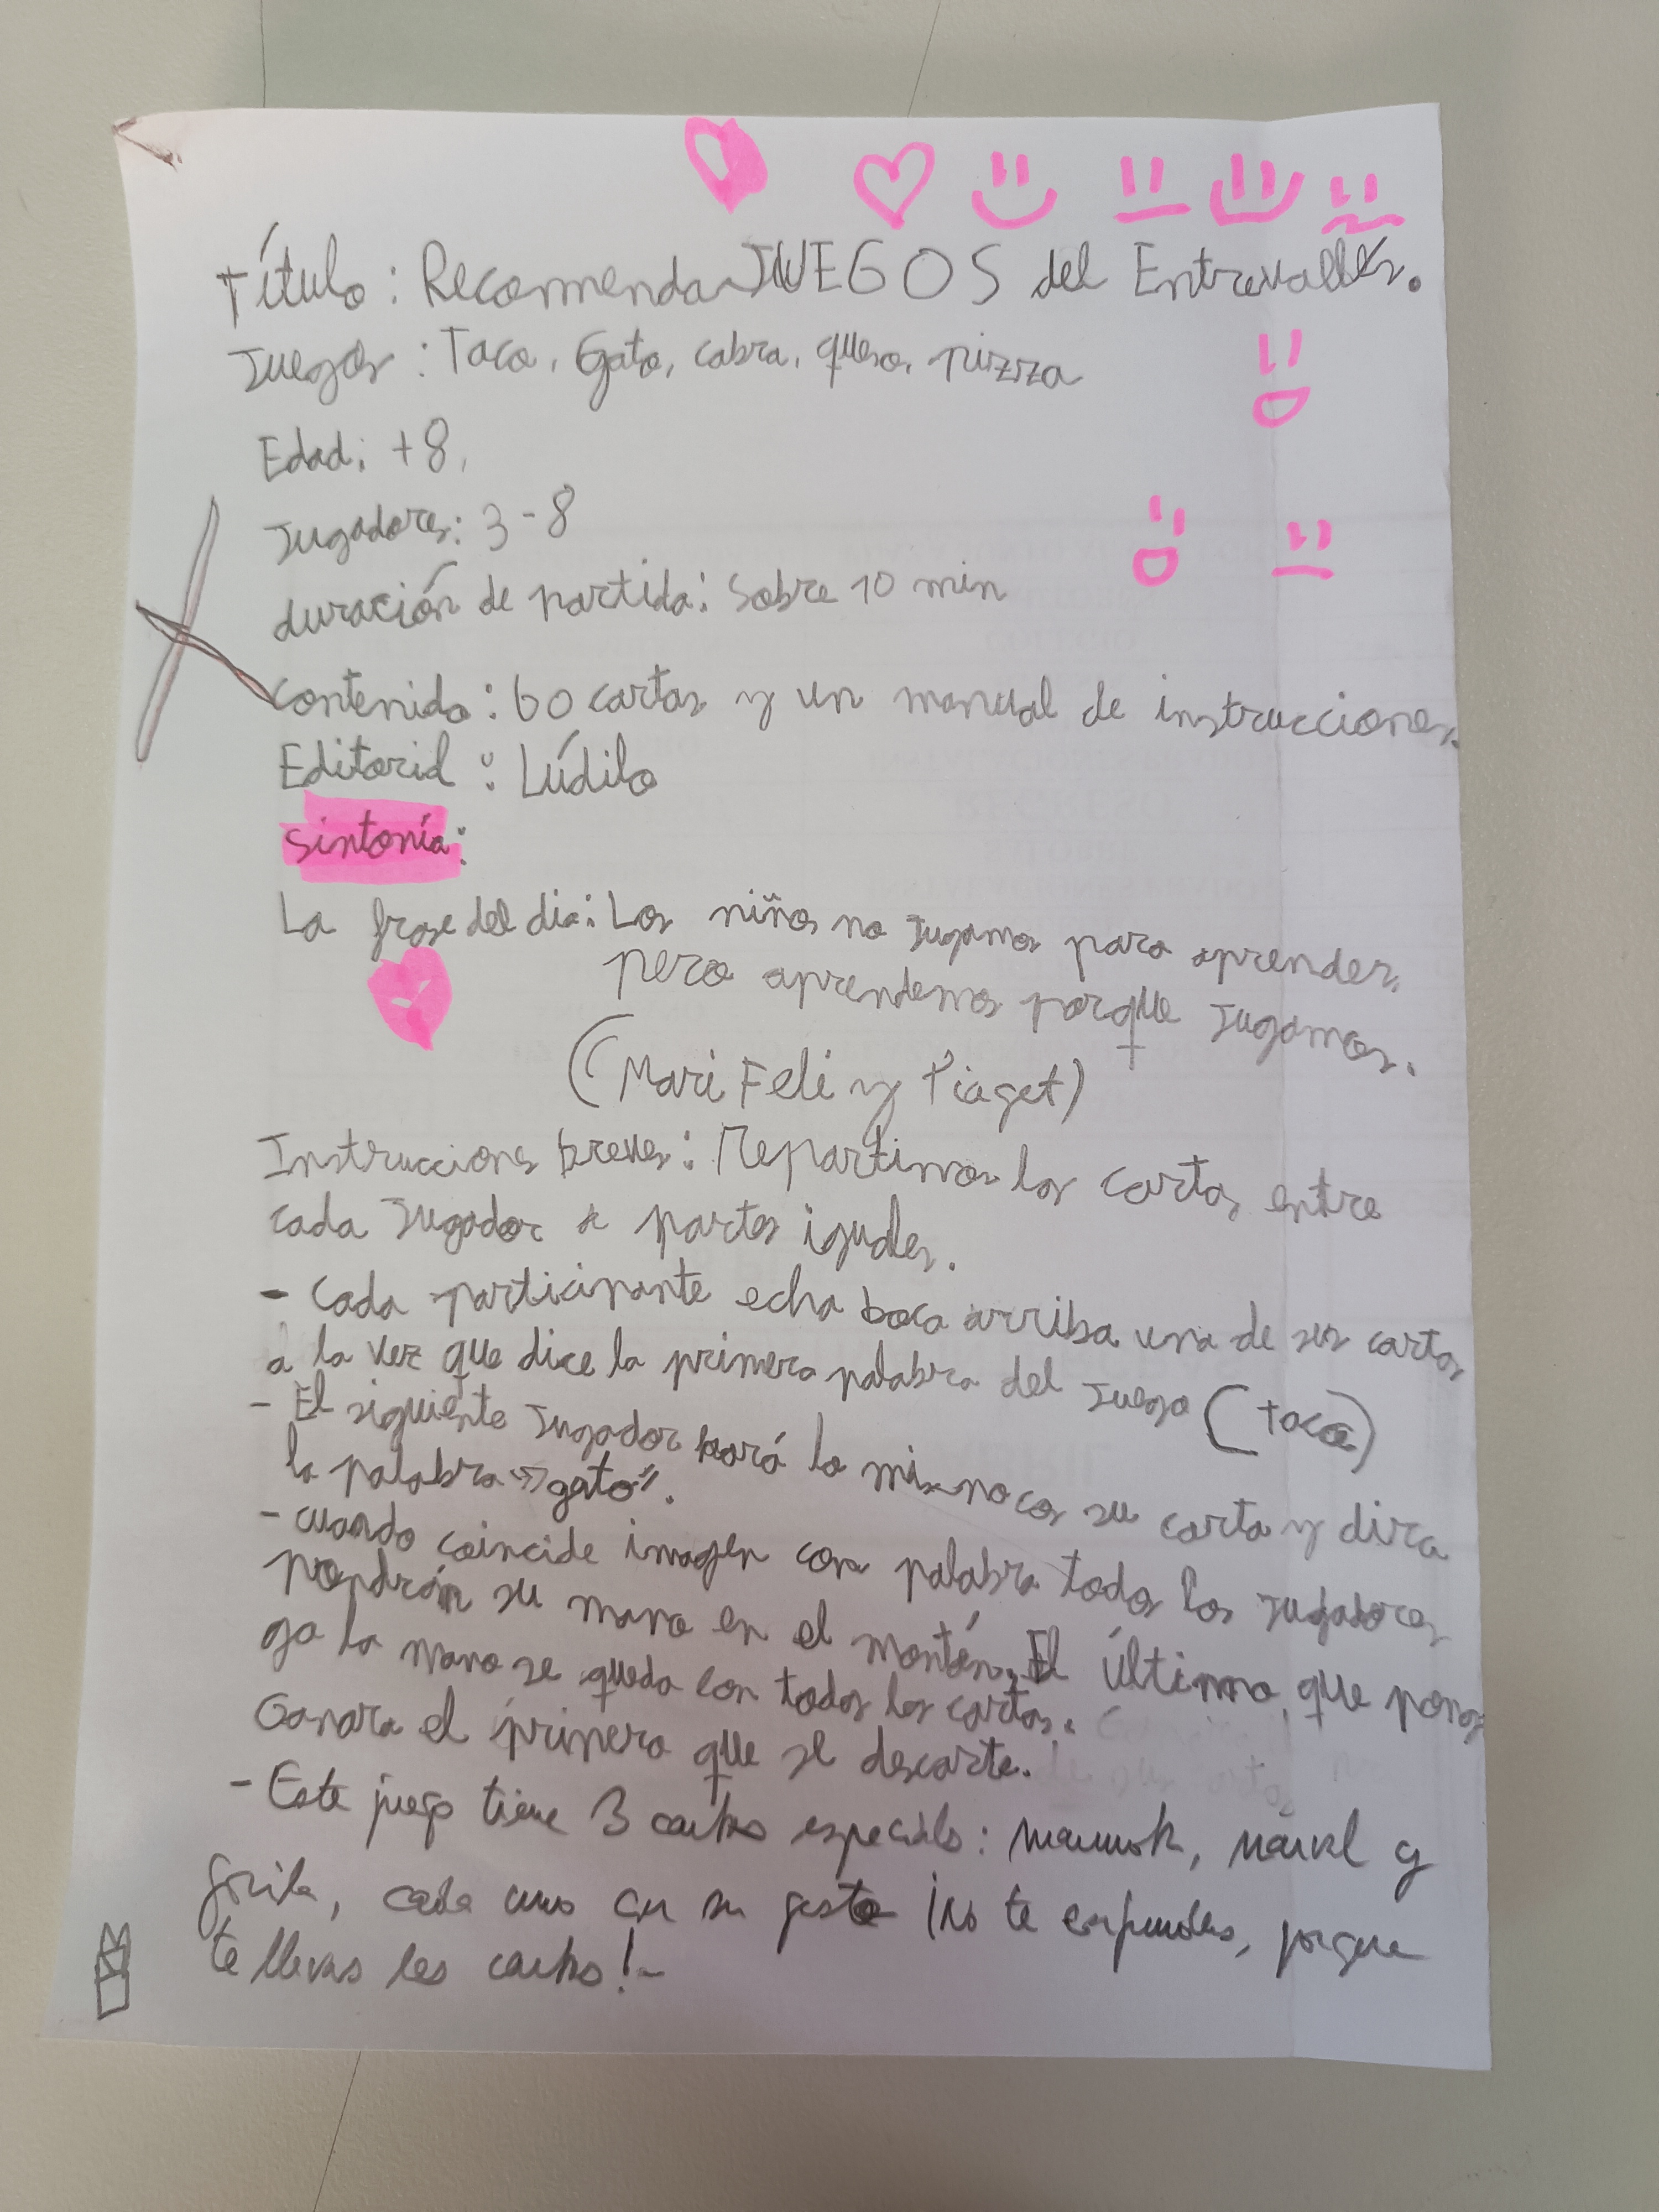 Título: RecomendaJUEGOS del Entrevalles.
Juegos: Taco, Gato, cabra, queso, pizza
Edad: +8,
Jugadores: 3-8
duración de partida: Sobre 10 min
contenido: 60 cartas y un manual de instrucciones.
Editorial: Lúdilo
Sintonía:
La frase del dia: Los niños no jugamos para aprender,
pero aprendemos porque jugamos.
(Mari Feli y Piaget)
Instrucciones breves: Repartimos las cartas entre
cada jugador a partes iguales.
- Cada participante echa boca arriba una de sus cartas
a la vez que dice la primera palabra del juego (taco)
- El siguiente jugador hará lo mismo con su carta y dira
la palabra "gato".
- cuando coincide imagen con palabra todos los jugadores
pondrán su mano en el montón. El último que pon
ga la mano se queda con todas las cartas.
Ganara el primero que se descarte.
- Este juego tiene 3 cartas especiales: marmota, narval y
gorila, cada uno con su gesto ¡no te confundas, porque
te llevas las cartas!-